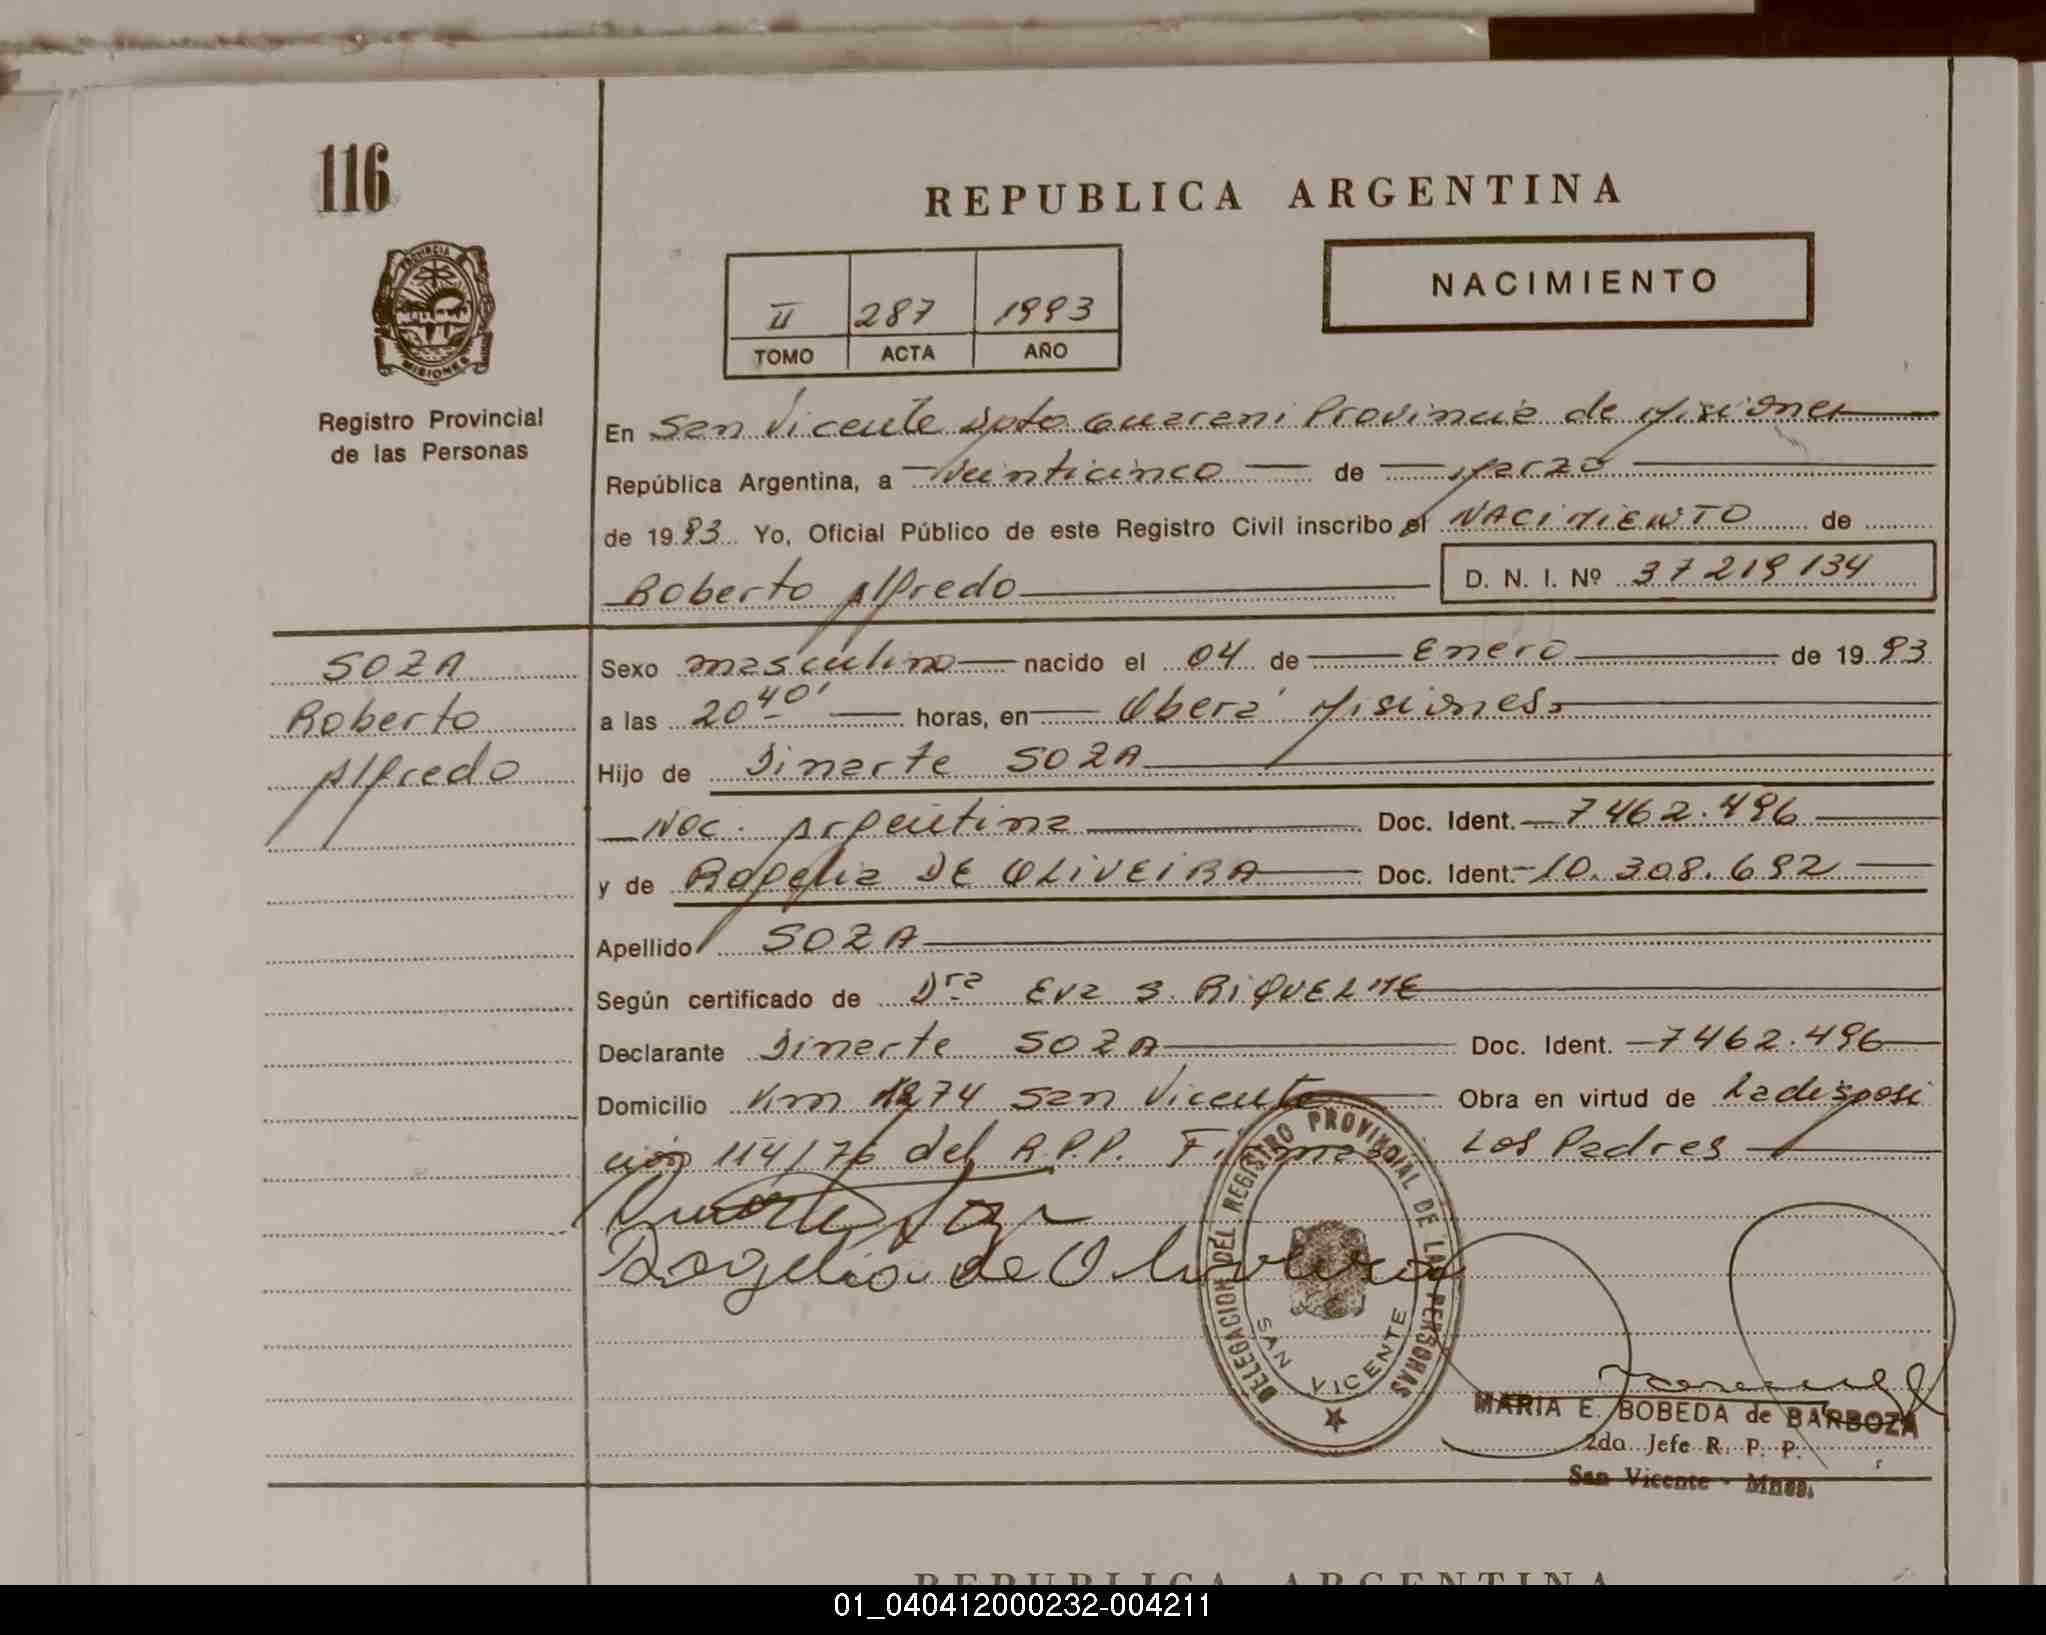 116
REPUBLICA ARGENTINA
NACIMIENTO
II 287 1993
TOMO ACTA AÑO
PROVINCIA
MISIONES
Registro Provincial
de las Personas
En San Vicente Dpto Guarani Provincia de Misiones
República Argentina, a Veinticinco de Marzo
de 1993 Yo, Oficial Público de este Registro Civil inscribo el NACIMIENTO de
Roberto Alfredo D. N. I. Nº 37219134
SOZA
Roberto
Alfredo
Sexo masculino nacido el 04 de Enero de 1993
a las 20 40' horas, en Oberá Misiones
Hijo de Dinarte SOZA
Nac. Argentina Doc. Ident. 7462.496
y de Rogelia DE OLIVEIRA Doc. Ident. 10.308.692
Apellido SOZA
Según certificado de Dra Eva S. RIQUELME
Declarante Dinarte SOZA Doc. Ident. 7462.496
Domicilio Km 1274 San Vicente Obra en virtud de La disposi
ción 114/76 del R.P.P. Firman Los Padres
Rogelia de Oliveira
DELEGACION DEL REGISTRO PROVINCIAL DE LAS PERSONAS
SAN VICENTE
MARIA E. BOBEDA de BARBOZA
2da Jefe R. P. P.
San Vicente - Mnes.
REPUBLICA ARGENTINA
01_040412000232-004211